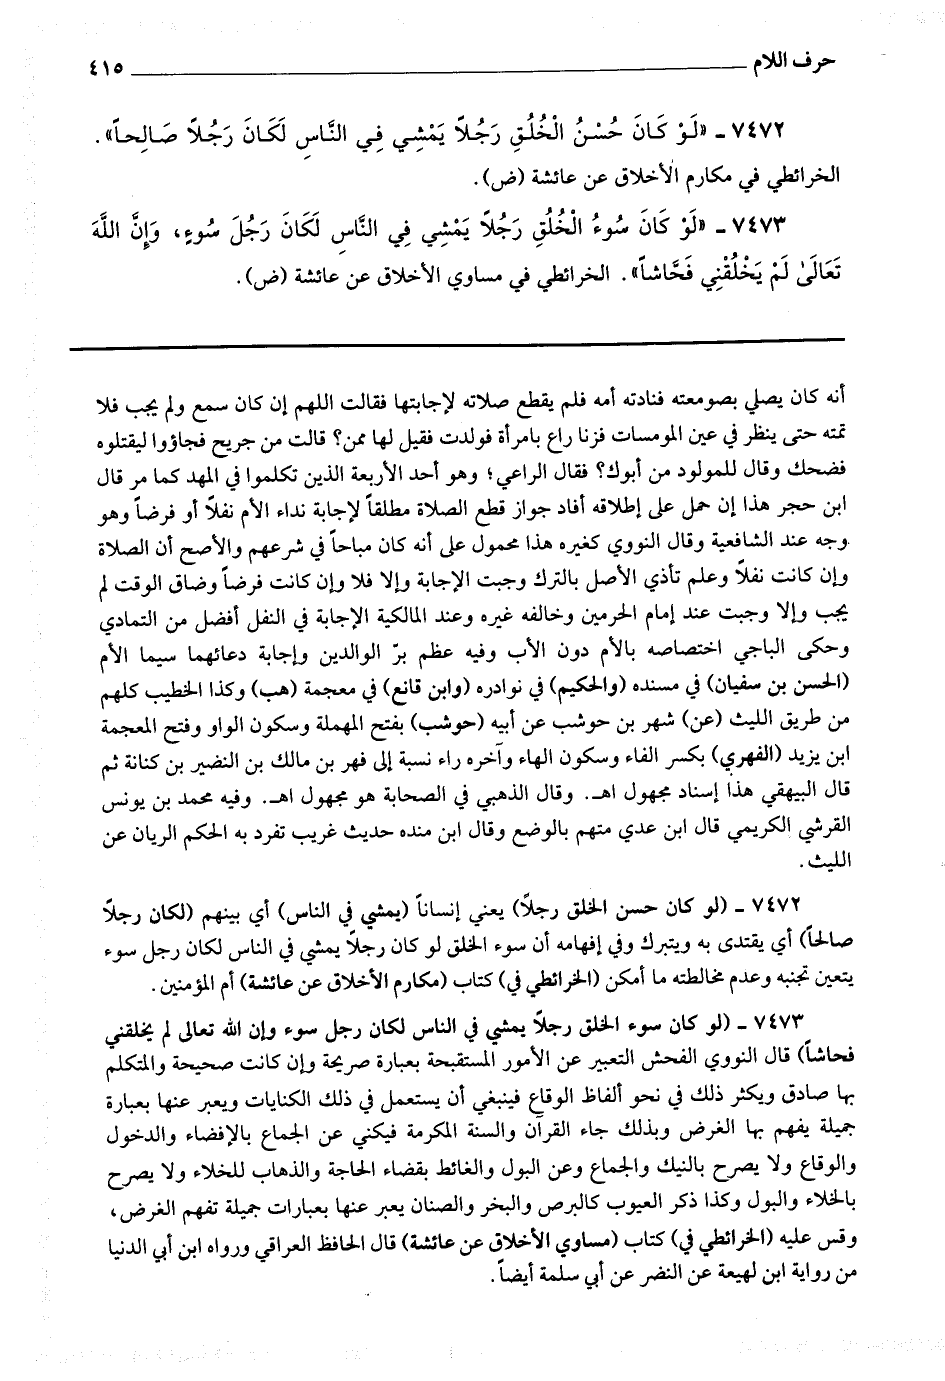 حرف اللام ٤١٥
٧٤٧٢ ـ «لَوْ كَانَ حُسْنُ الْخُلُقِ رَجُلاً يَمْشِي فِي النَّاسِ لَكَانَ رَجُلاً صَالِحاً» .
الخرائطي في مكارم الأخلاق عن عائشة (ض).
٧٤٧٣ ـ «لَوْ كَانَ سُوءُ الْخُلُقِ رَجُلاً يَمْشِي فِي النَّاسِ لَكَانَ رَجُلَ سُوءٍ، وَإِنَّ اللَّهَ
تَعَالَىٰ لَمْ يَخْلُقْنِي فَحَّاشاً» . الخرائطي في مساوي الأخلاق عن عائشة (ض).
أنه كان يصلي بصومعته فنادته أمه فلم يقطع صلاته لإجابتها فقالت اللهم إن كان سمع ولم يجب فلا
تمته حتى ينظر في عين المومسات فزنا راع بامرأة فولدت فقيل لها ممن؟ قالت من جريج فجاؤوا ليقتلوه
فضحك وقال للمولود من أبوك؟ فقال الراعي؛ وهو أحد الأربعة الذين تكلموا في المهد كما مر قال
ابن حجر هذا إن حمل على إطلاقه أفاد جواز قطع الصلاة مطلقاً لإجابة نداء الأم نفلاً أو فرضاً وهو
وجه عند الشافعية وقال النووي كغيره هذا محمول على أنه كان مباحاً في شرعهم والأصح أن الصلاة
وإن كانت نفلاً وعلم تأذي الأصل بالترك وجبت الإجابة وإلا فلا وإن كانت فرضاً وضاق الوقت لم
يجب وإلا وجبت عند إمام الحرمين وخالفه غيره وعند المالكية الإجابة في النفل أفضل من التمادي
وحكى الباجي اختصاصه بالأم دون الأب وفيه عظم برّ الوالدين وإجابة دعائهما سيما الأم
(الحسن بن سفيان) في مسنده (والحكيم) في نوادره (وابن قانع) في معجمة (هب) وكذا الخطيب كلهم
من طريق الليث (عن) شهر بن حوشب عن أبيه (حوشب) بفتح المهملة وسكون الواو وفتح المعجمة
ابن يزيد (الفهري) بكسر الفاء وسكون الهاء وآخره راء نسبة إلى فهر بن مالك بن النضير بن كنانة ثم
قال البيهقي هذا إسناد مجهول اهـ. وقال الذهبي في الصحابة هو مجهول اهـ. وفيه محمد بن يونس
القرشي الكريمي قال ابن عدي متهم بالوضع وقال ابن منده حديث غريب تفرد به الحكم الريان عن
الليث.
٧٤٧٢ ـ (لو كان حسن الخلق رجلاً) يعني إنساناً (يمشي في الناس) أي بينهم (لكان رجلاً
صالحاً) أي يقتدى به ويتبرك وفي إفهامه أن سوء الخلق لو كان رجلاً يمشي في الناس لكان رجل سوء
يتعين تجنبه وعدم مخالطته ما أمكن (الخرائطي في) كتاب (مكارم الأخلاق عن عائشة) أم المؤمنين.
٧٤٧٣ ـ (لو كان سوء الخلق رجلاً يمشي في الناس لكان رجل سوء وإن الله تعالى لم يخلقني
فحاشاً) قال النووي الفحش التعبير عن الأمور المستقبحة بعبارة صريحة وإن كانت صحيحة والمتكلم
بها صادق ويكثر ذلك في نحو ألفاظ الوقاع فينبغي أن يستعمل في ذلك الكنايات ويعبر عنها بعبارة
جميلة يفهم بها الغرض وبذلك جاء القرآن والسنة المكرمة فيكني عن الجماع بالإفضاء والدخول
والوقاع ولا يصرح بالنيك والجماع وعن البول والغائط بقضاء الحاجة والذهاب للخلاء ولا يصرح
بالخلاء والبول وكذا ذكر العيوب كالبرص والبخر والصنان يعبر عنها بعبارات جميلة تفهم الغرض،
وقس عليه (الخرائطي في) كتاب (مساوي الأخلاق عن عائشة) قال الحافظ العراقي ورواه ابن أبي الدنيا
من رواية ابن لهيعة عن النضر عن أبي سلمة أيضاً.